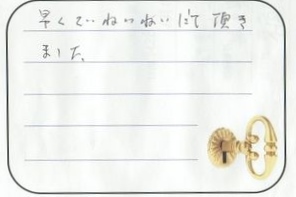 早くていねいにして頂き
ました。